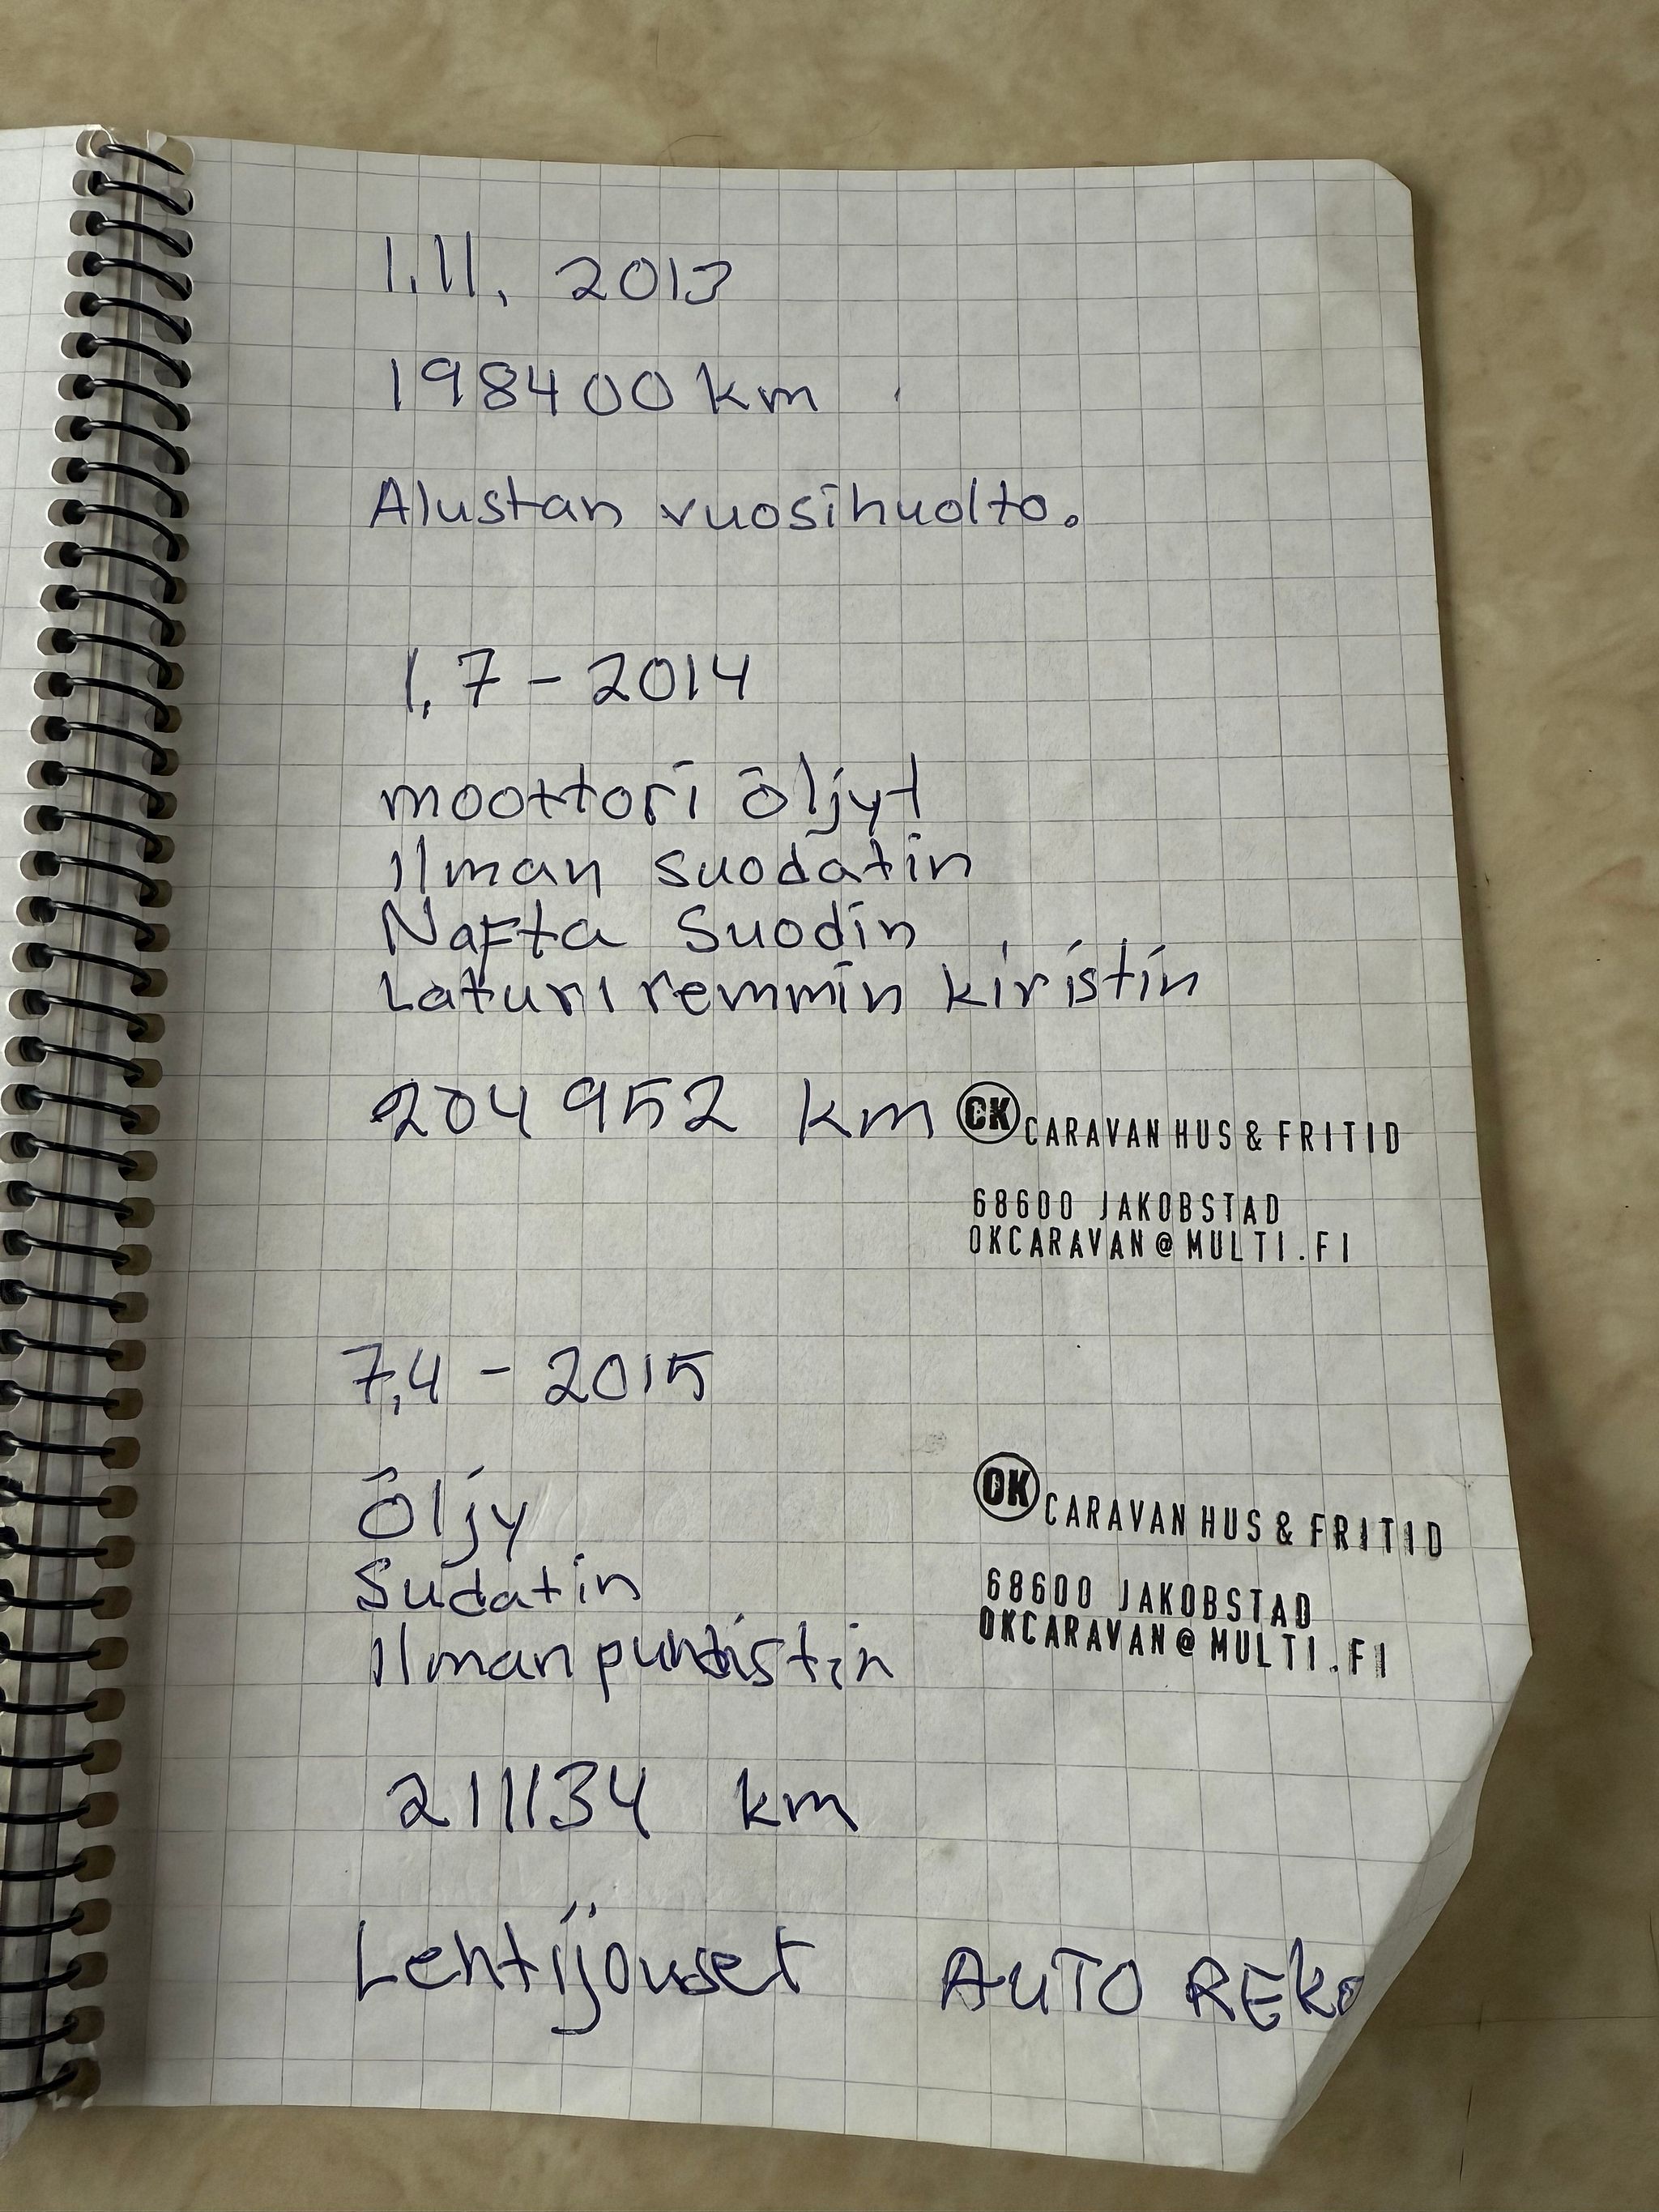 1.11. 2013
198400 km
Alustan vuosihuolto.
1.7 - 2014
moottori öljyt
Ilman suodatin
Nafta Suodin
Laturi remmin kiristin
204 952 km
OK CARAVAN HUS & FRITID
68600 JAKOBSTAD
OKCARAVAN@MULTI.FI
7.4 - 2015
Öljy
Sudatin
Ilman puhdistin
OK CARAVAN HUS & FRITID
68600 JAKOBSTAD
OKCARAVAN@MULTI.FI
211134 km
Lehtijouset AUTO REKO